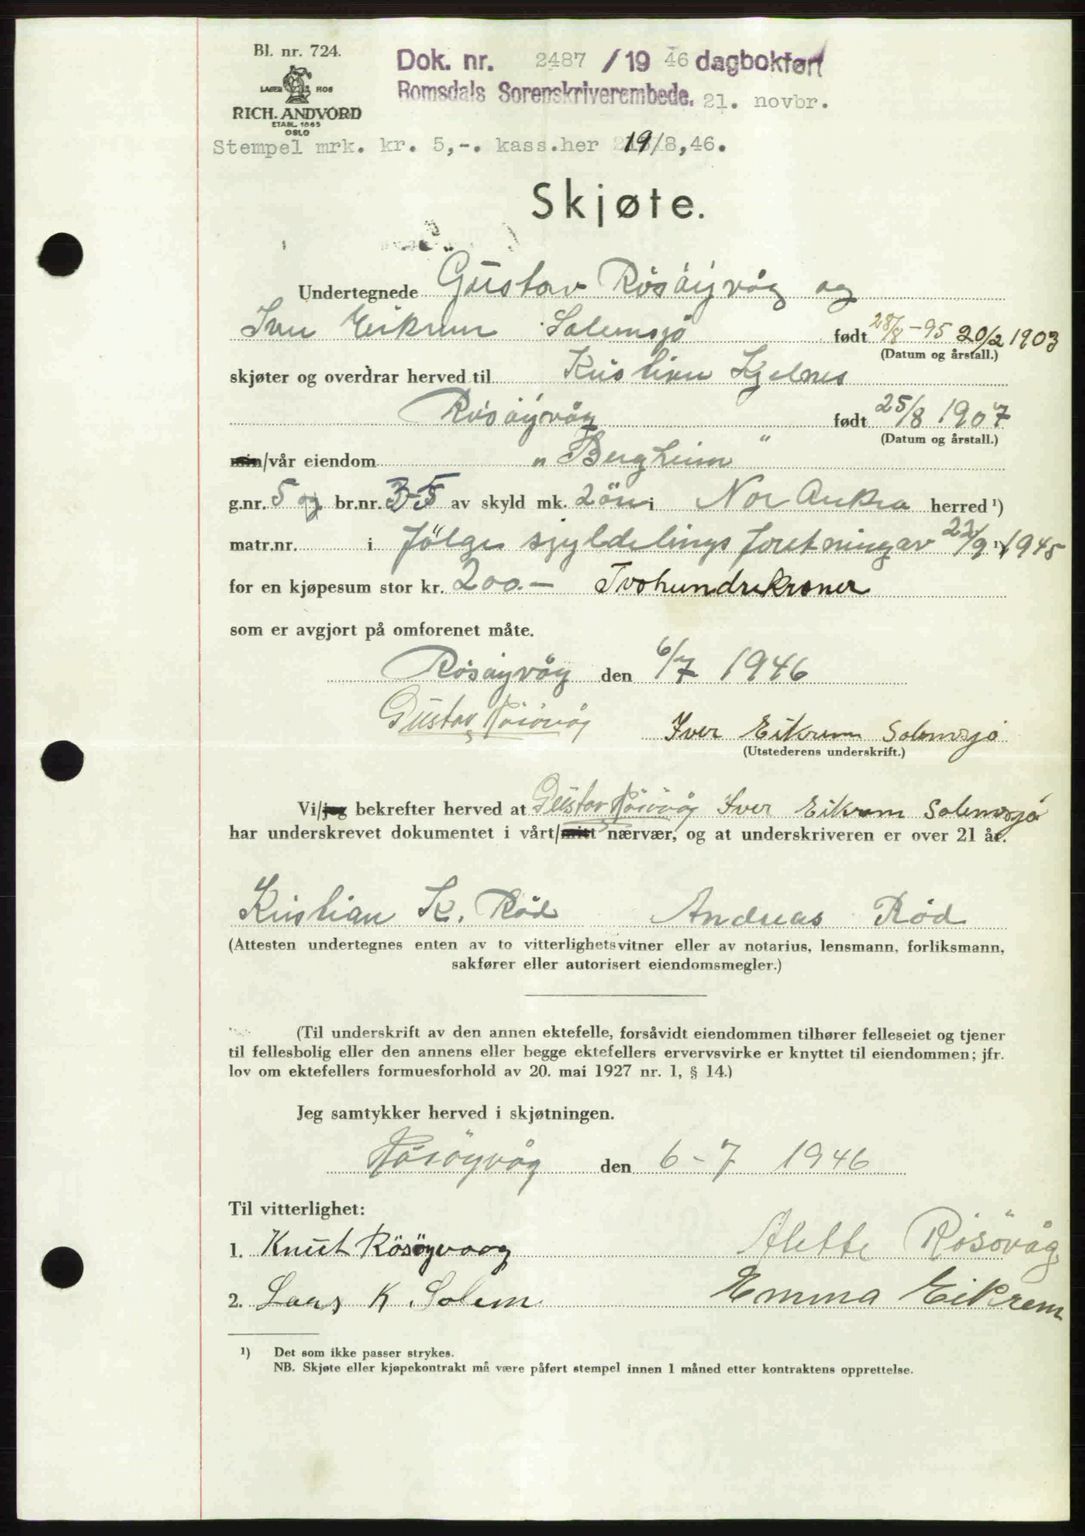 Bl. nr. 724.
LAGER HOS
RICH. ANDVORD
ETABL. 1865
OSLO
Dok. nr. 2487 / 19 46 dagbokført
Romsdals Sorenskriverembede. 21. novbr.
Stempel mrk. kr. 5,-. kass.her 19/8,46.
Skjøte.
Undertegnede Gustav Rösöyvåg og
Iver Eikrem Solemsjö født 28/8 -95 20/2 1903
(Datum og årstall.)
skjøter og overdrar herved til Kristian Kjelnes
Rösöyvåg født 25/8 1907
(Datum og årstall.)
min/vår eiendom „ Bergheim "
g.nr. 5 og br.nr. 35 av skyld mk. 2 öre i Nor Aukra herred ¹)
matr.nr. i følge skyldelings forretning av 22/9 1945
for en kjøpesum stor kr. 200.— Tvohundrekroner
som er avgjort på omforenet måte.
Rösöyvåg den 6/7 1946
Gustav Rösövåg Iver Eikrem Solemsjö
(Utstederens underskrift.)
Vi/jeg bekrefter herved at Gustav Rösövåg Iver Eikrem Solemsjö
har underskrevet dokumentet i vårt/mitt nærvær, og at underskriveren er over 21 år.
Kristian K. Rød Andreas Rød
(Attesten undertegnes enten av to vitterlighetsvitner eller av notarius, lensmann, forliksmann,
sakfører eller autorisert eiendomsmegler.)
(Til underskrift av den annen ektefelle, forsåvidt eiendommen tilhører felleseiet og tjener
til fellesbolig eller den annens eller begge ektefellers ervervsvirke er knyttet til eiendommen; jfr.
lov om ektefellers formuesforhold av 20. mai 1927 nr. 1, § 14.)
Jeg samtykker herved i skjøtningen.
Rösöyvåg den 6 - 7 1946
Til vitterlighet:
1. Knut Rösöyvaag Alette Rösövåg
2. Lars K. Solem Emma Eikrem
¹) Det som ikke passer strykes.
NB. Skjøte eller kjøpekontrakt må være påført stempel innen 1 måned etter kontraktens opprettelse.